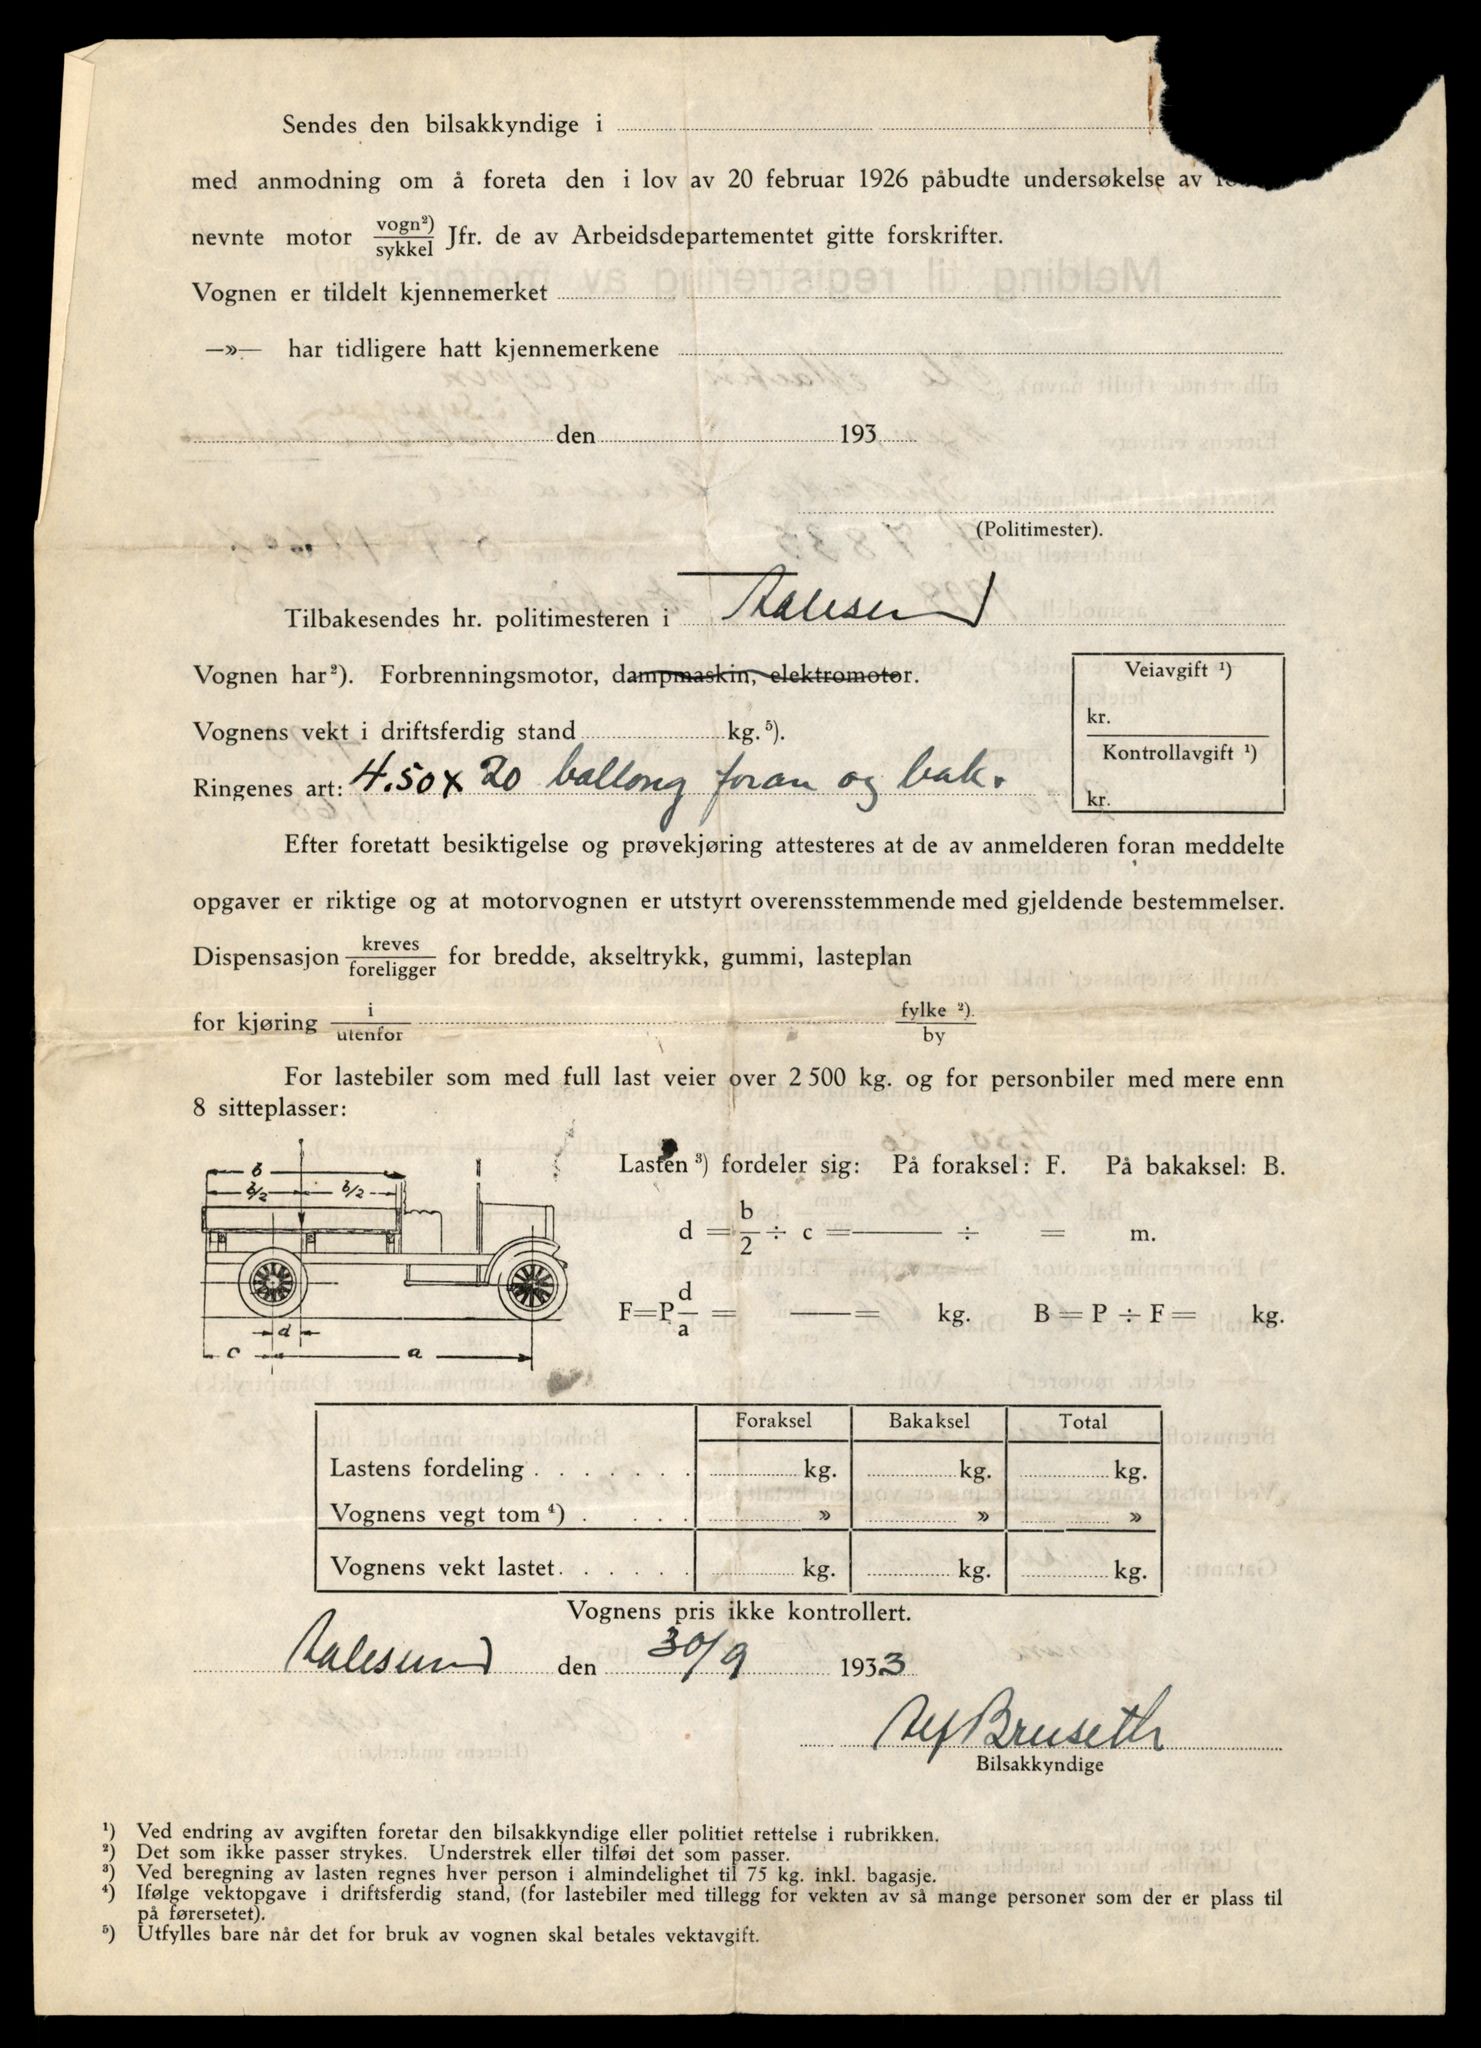 Sendes den bilsakkyndige i
med anmodning om å foreta den i lov av 20 februar 1926 påbudte undersøkelse av
nevnte motor vogn²)/sykkel Jfr. de av Arbeidsdepartementet gitte forskrifter.
Vognen er tildelt kjennemerket
—»— har tidligere hatt kjennemerkene
den 193
(Politimester).
Tilbakesendes hr. politimesteren i Aalesund
Vognen har²). Forbrenningsmotor, dampmaskin, elektromotor.
Veiavgift ¹)
kr.
Vognens vekt i driftsferdig stand kg.⁵).
Kontrollavgift ¹)
kr.
Ringenes art: 4.50 x 20 ballong foran og bak.
Efter foretatt besiktigelse og prøvekjøring attesteres at de av anmelderen foran meddelte
opgaver er riktige og at motorvognen er utstyrt overensstemmende med gjeldende bestemmelser.
Dispensasjon kreves/foreligger for bredde, akseltrykk, gummi, lasteplan
for kjøring i/utenfor fylke ²)./by
For lastebiler som med full last veier over 2 500 kg. og for personbiler med mere enn
8 sitteplasser:
b
b/2 b/2
d
c a
Lasten ³) fordeler sig: På foraksel: F. På bakaksel: B.
d = b/2 ÷ c = —— ÷ = m.
F=P d/a = —— = kg. B = P ÷ F = kg.
Foraksel Bakaksel Total
Lastens fordeling . . . . . . . kg. kg. kg.
Vognens vegt tom ⁴) . . . . » » »
Vognens vekt lastet. . . . . . kg. kg. kg.
Vognens pris ikke kontrollert.
Aalesund den 30/9 1933
Alf Bruseth
Bilsakkyndige
¹) Ved endring av avgiften foretar den bilsakkyndige eller politiet rettelse i rubrikken.
²) Det som ikke passer strykes. Understrek eller tilføi det som passer.
³) Ved beregning av lasten regnes hver person i almindelighet til 75 kg. inkl. bagasje.
⁴) Ifølge vektopgave i driftsferdig stand, (for lastebiler med tillegg for vekten av så mange personer som der er plass til
på førersetet).
⁵) Utfylles bare når det for bruk av vognen skal betales vektavgift.